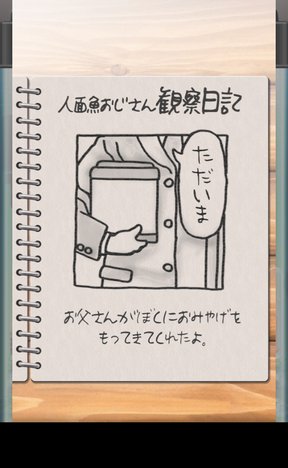 人面魚おじさん観察日記
ただいま
お父さんがぼくにおみやげを
もってきてくれたよ。